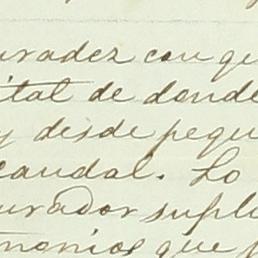 uradez con qu
ital de donde
y desde pequ
caudal. Lo
urador suplu
monios que p